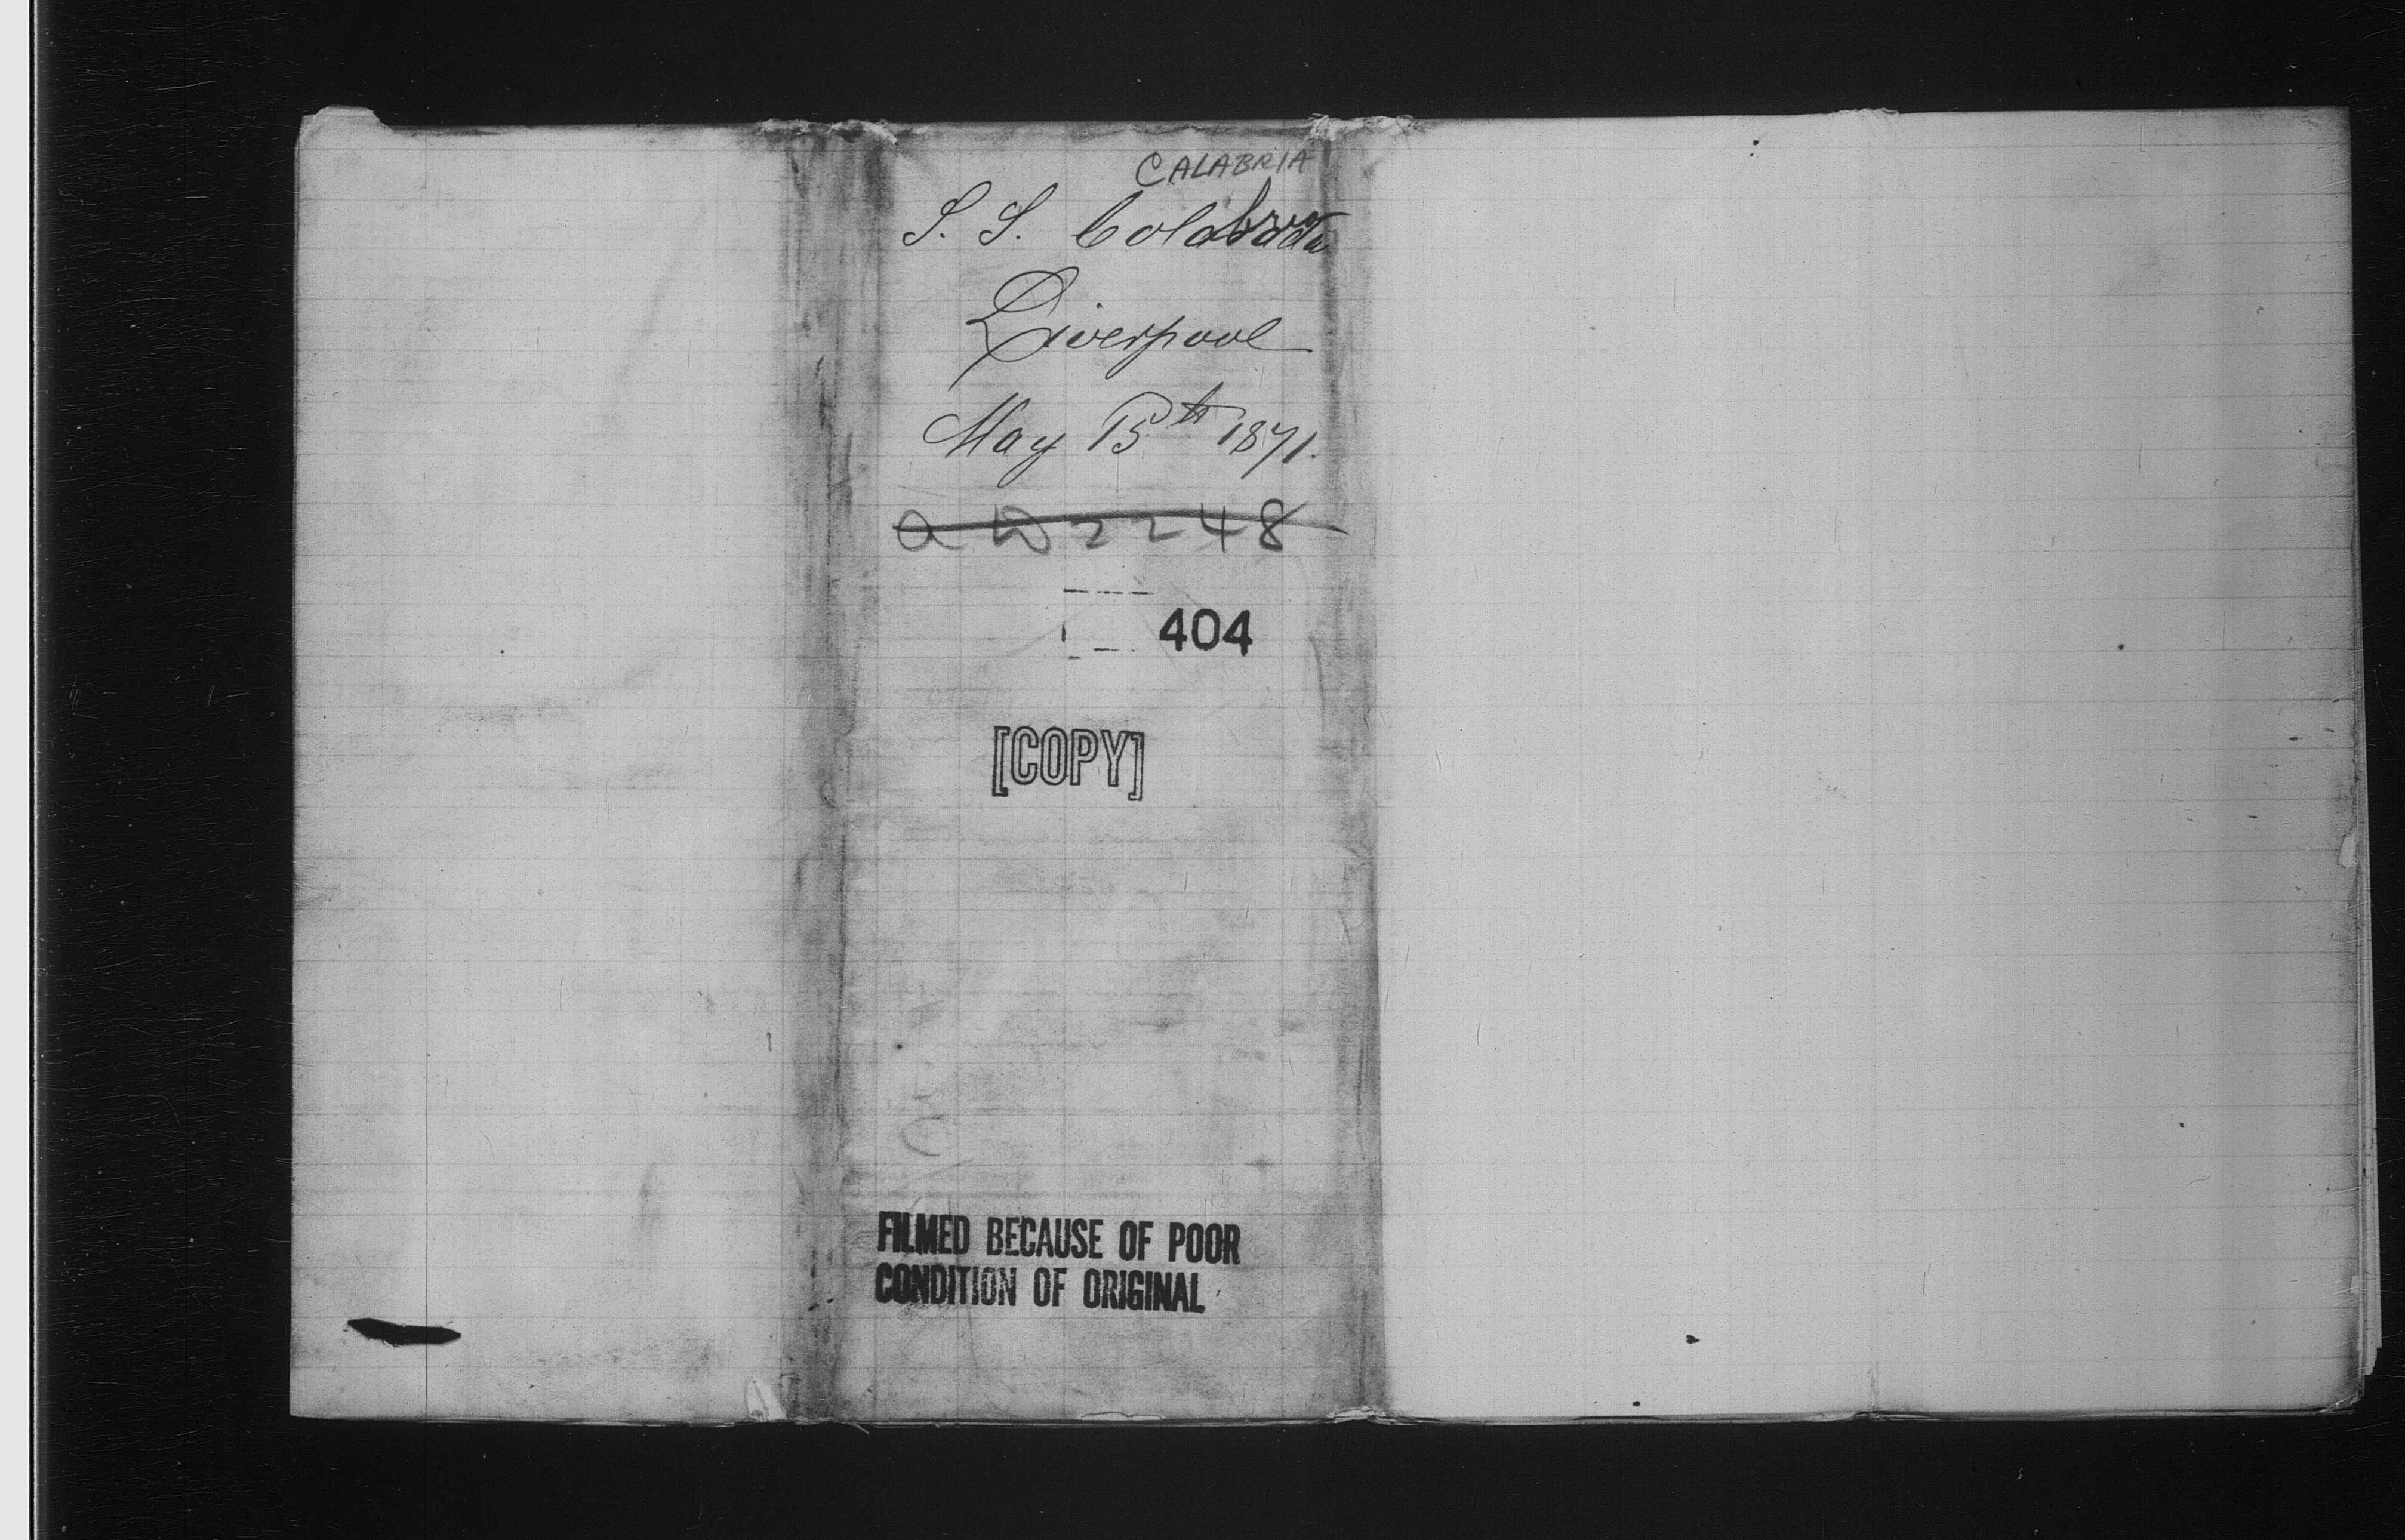 CALABRIA
S. S. Colabria
Liverpool
May 15th 1871.
2248
404
[COPY]
FILMED BECAUSE OF POOR
CONDITION OF ORIGINAL